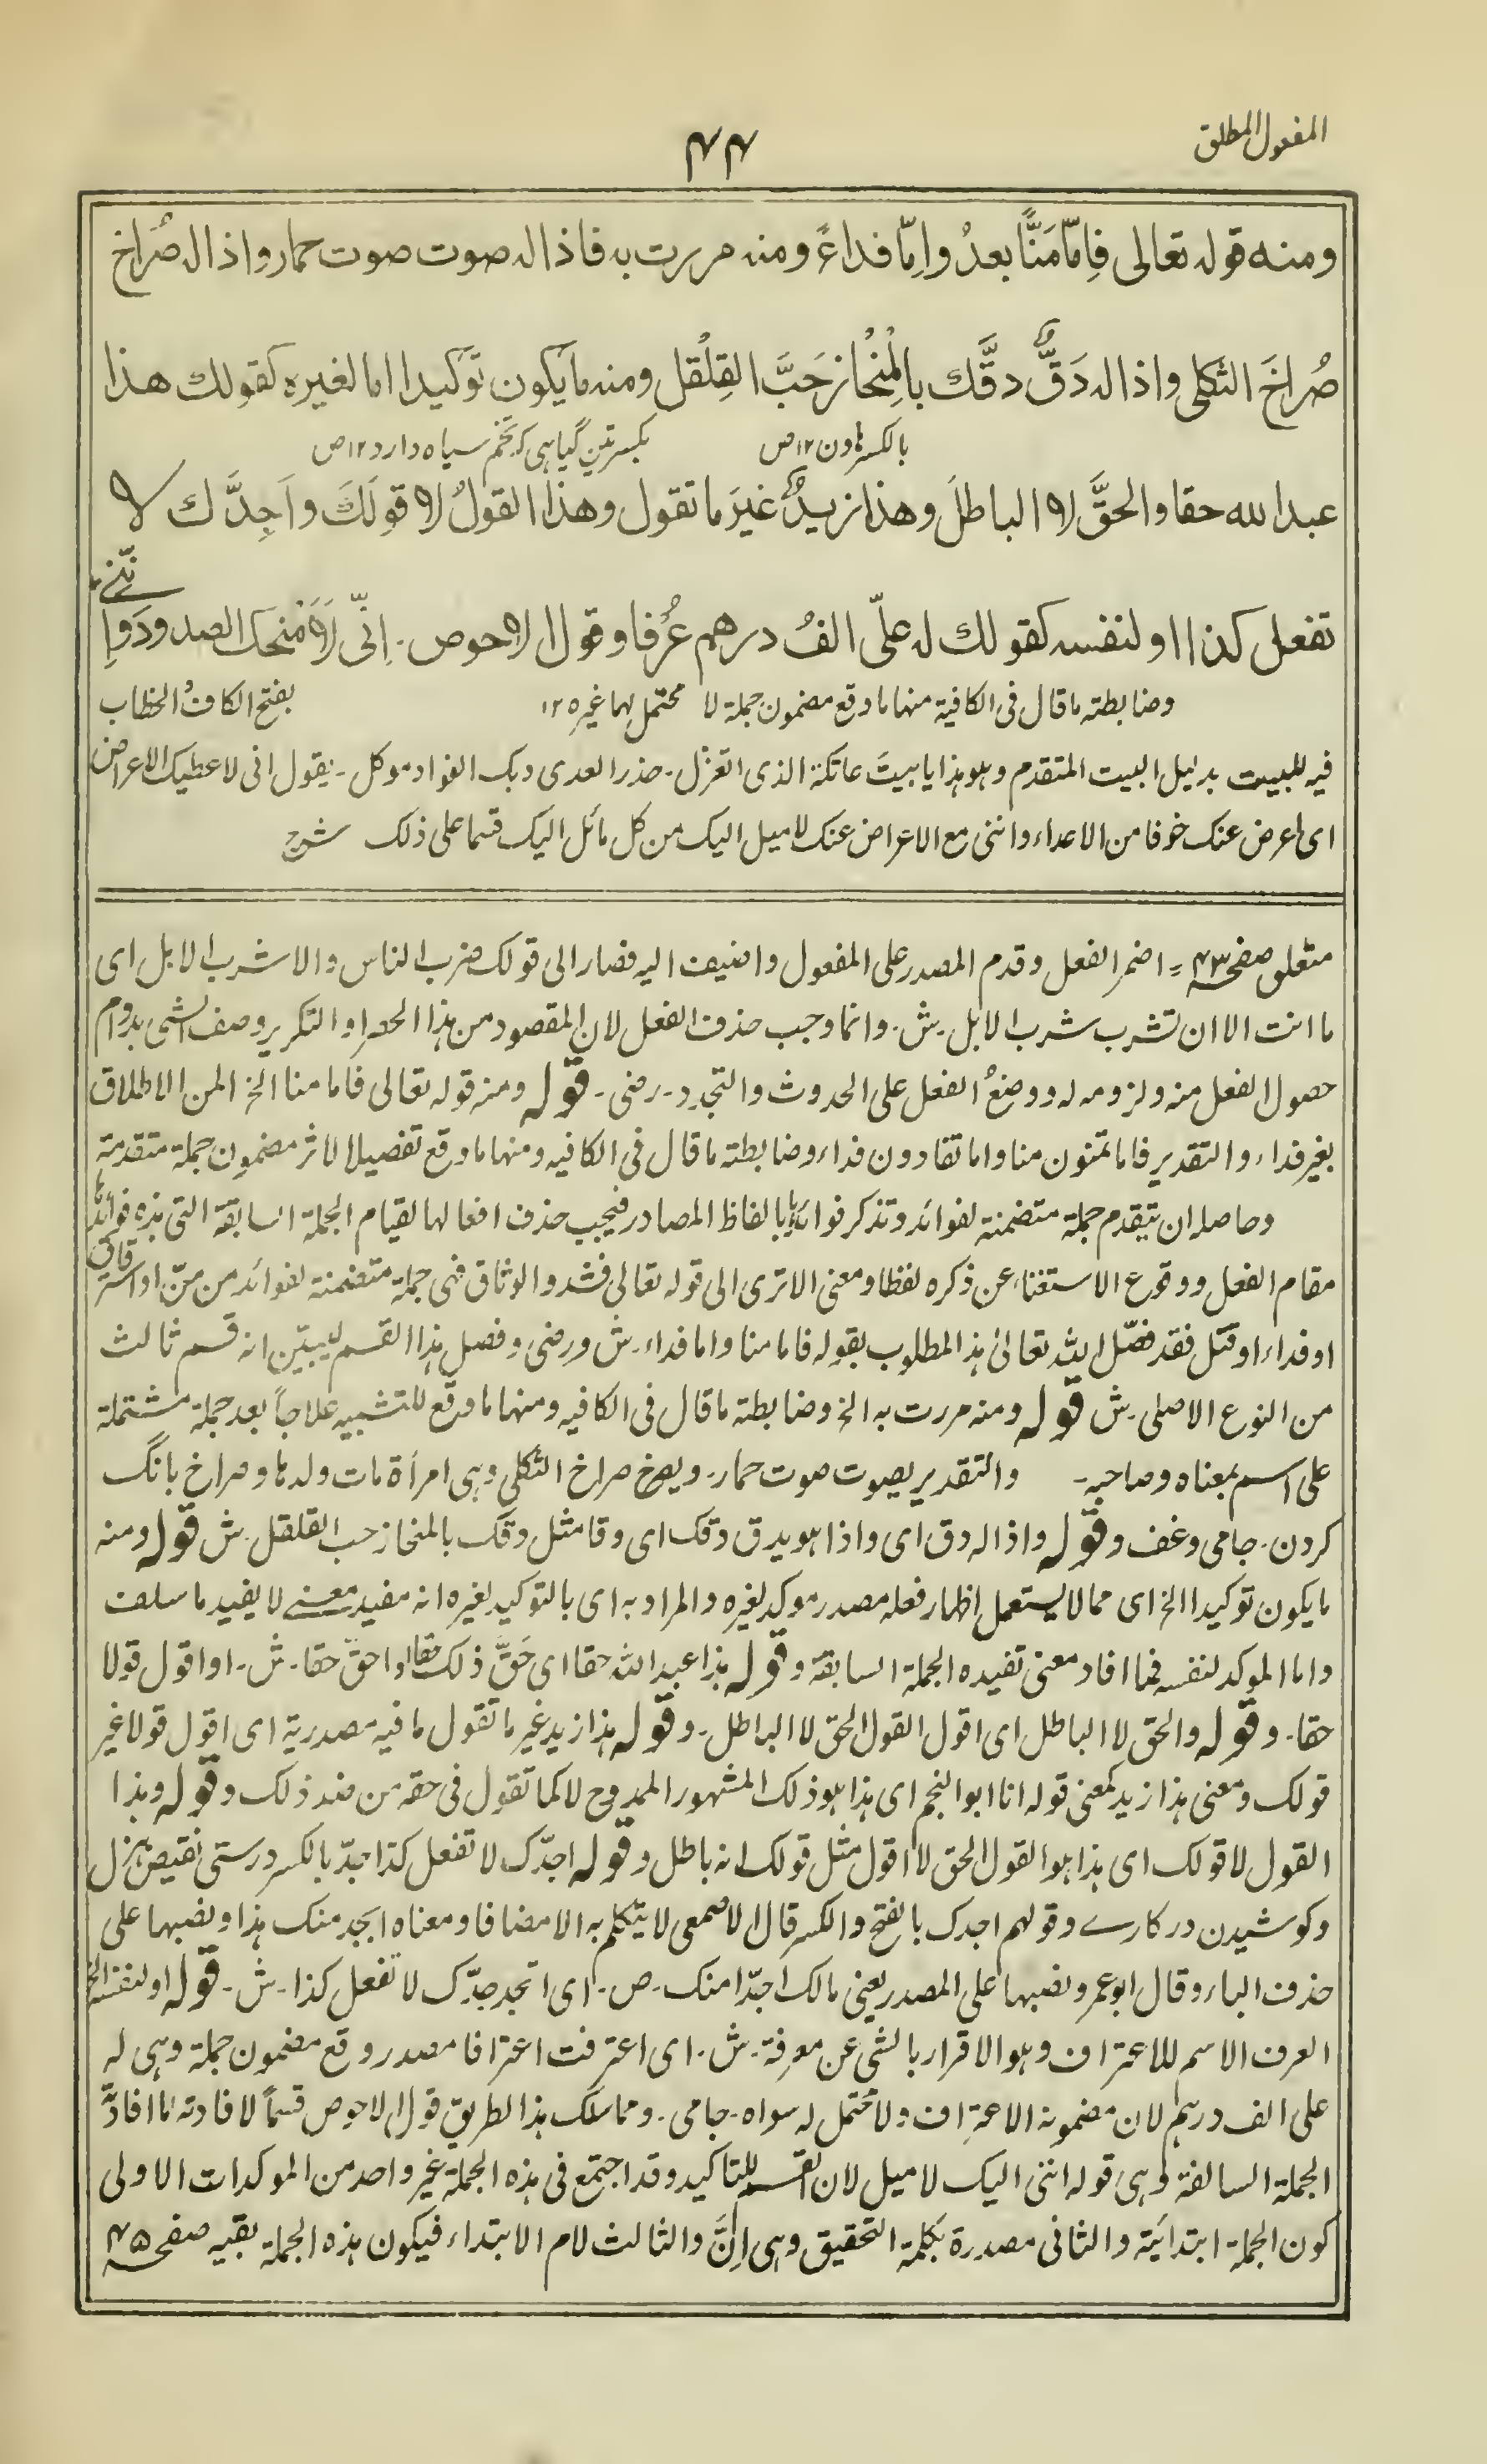 المفعول المطلق
۴۴
ومنه قوله تعالى فِامّا مَنًّا بعدُ واِمّا فداءً ومنه مررت به فاذا له صوت صوت حمار واذا له صُراخ
صُراخَ الثكلى واذا له دَقٌّ دقَّك بالمِنْحاز حَبَّ القِلْقل ومنه ما يكون توكيدا اما لغيره كقولك هذا
بالكسر هاون ١٢ ص
بكسرتين گیاہی کہ تخم سیاہ دارد ١٢ ص
عبد الله حقا والحقَّ لا الباطلَ وهذا زيدٌ غيرَ ما تقول وهذا القولُ لا قولَكَ واَجِدَّك لا
تفعل كذا او لنفسه كقولك له علىّ الفُ درهم عُرْفا وقول الاحوص۔ اِنّى لَاَمنحك الصدود وَاِ
نّنى
وضابطته ما قال فى الكافية منها ما وقع مضمون جملة لا محتمل لها غيره ١٢
بفتح الكاف والخطاب
فيه للبيت بدليل البيت المتقدم وهو هذا يا بيتَ عاتكة الذى اتعزّل۔ حذر العدى وبك الفواد موكل۔ يقول انى لاعطيك الاعراض
اى اعرض عنك خوفا من الاعداء واننى مع الاعراض عنك لاميل اليك من كل مائل اليك قسما على ذلك شرح
متعلق صفحہ ۴۳ = اضمر الفعل وقدم المصدر على المفعول واضيف اليه فصار الى قولك ضرب الناس والا شرب الابل اى
ما انت الا ان تشرب شرب الابل۔ ش۔ وانما وجب حذف الفعل لان المقصود من هذا الحصر او التكرير وصف الشى بدوام
حصول الفعل منه ولزومه له ووضعُ الفعل على الحدوث والتجدد۔ رضى۔ قوله ومنه قوله تعالى فاما منا الخ المن الاطلاق
بغير فداء والتقدير فاما تمنون منا واما تفادون فداء وضابطته ما قال فى الكافيه ومنها ما وقع تفصيلا لاثر مضمون جملة متقدمة
وحاصله ان يتقدم جملة متضمنة لفوائد وتذكر فوائدها بالفاظ المصادر فيجب حذف افعالها لقيام الجملة السابقة التى هذه فوائدها
مقام الفعل ووقوع الاستغناء عن ذكره لفظا ومعنى الا ترى الى قوله تعالى فشدوا الوثاق فهى جملة متضمنة لفوائد من منّ او استرقاق
او فداء او قتل فقد فصّل الله تعالىٰ هذا المطلوب بقوله فاما منا واما فداء۔ ش ورضى وفصل هذا القسم ليبيّن انه قسم ثالث
من النوع الاصلى۔ ش قوله ومنه مررت به الخ وضابطته ما قال فى الكافيه ومنها ما وقع للتشبيه علاجاً بعد جملة مشتملة
على اسم بمعناه وصاحبه۔ والتقدير يصوت صوت حمار۔ ويصرخ صراخ الثكلى وهى امرأة مات ولدها وصراخ بانگ
كردن۔ جامى وغف وقوله واذا له دق اى واذا هو يدق دقك اى دقا مثل دقك بالمنحاز حب القلقل۔ ش قوله ومنه
ما يكون توكيدا الخ اى مما لا يستعمل اظهار فعله مصدر موكد لغيره والمراد به اى بالتوكيد لغيره انه مفيد معنى لا يفيد ما سلف
واما الموكد لنفسه فما افاد معنى تفيده الجملة السابقة وقوله هذا عبد الله حقا اى حَقَّ ذلك حقا او احقّ حقا۔ ش۔ او اقول قولا
حقا۔ وقوله والحق لا الباطل اى اقول القول الحق لا الباطل۔ وقوله هذا زيد غير ما تقول ما فيه مصدرية اى اقول قولا غير
قولك ومعنى هذا زيد كمعنى قوله انا ابو النجم اى هذا هو ذلك المشهور الممدوح لا كما تقول فى حقه من ضد ذلك وقوله وهذا
القول لا قولك اى هذا هو القول الحق لا اقول مثل قولك انه باطل وقوله اجدّك لا تفعل كذا جدّ بالكسر درستى نقيض هزل
وكوشيدن در كارے وقولهم اجدك بالفتح والكسر قال الاصمعى لا يتكلم به الا مضافا ومعناه ابجد منك هذا ونصبها على
حذف الباء وقال ابو عمرو نصبها على المصدر يعنى مالك اجدّا منك۔ ص۔ اى اتجد جدّك لا تفعل كذا۔ ش۔ قوله او لنفسه الخ
العرف الاسم للاعتراف وهو الاقرار بالشى عن معرفة۔ ش۔ اى اعترفت اعترافا مصدر وقع مضمون جملة وهى له
على الف درهم لان مضمونه الاعتراف ولا محتمل له سواه۔ جامى۔ ومما سلك هذا الطريق قول الاحوص قسماً لافادته ما افادته
الجملة السالفة وهى قوله اننى اليك لاميل لان القسم للتاكيد وقد اجتمع فى هذه الجملة غير واحد من الموكدات الاولى
كون الجملة ابتدائية والثانى مصدرة بكلمة التحقيق وهى اِنَّ والثالث لام الابتداء فيكون هذه الجملة بقيه صفحہ ۴۵